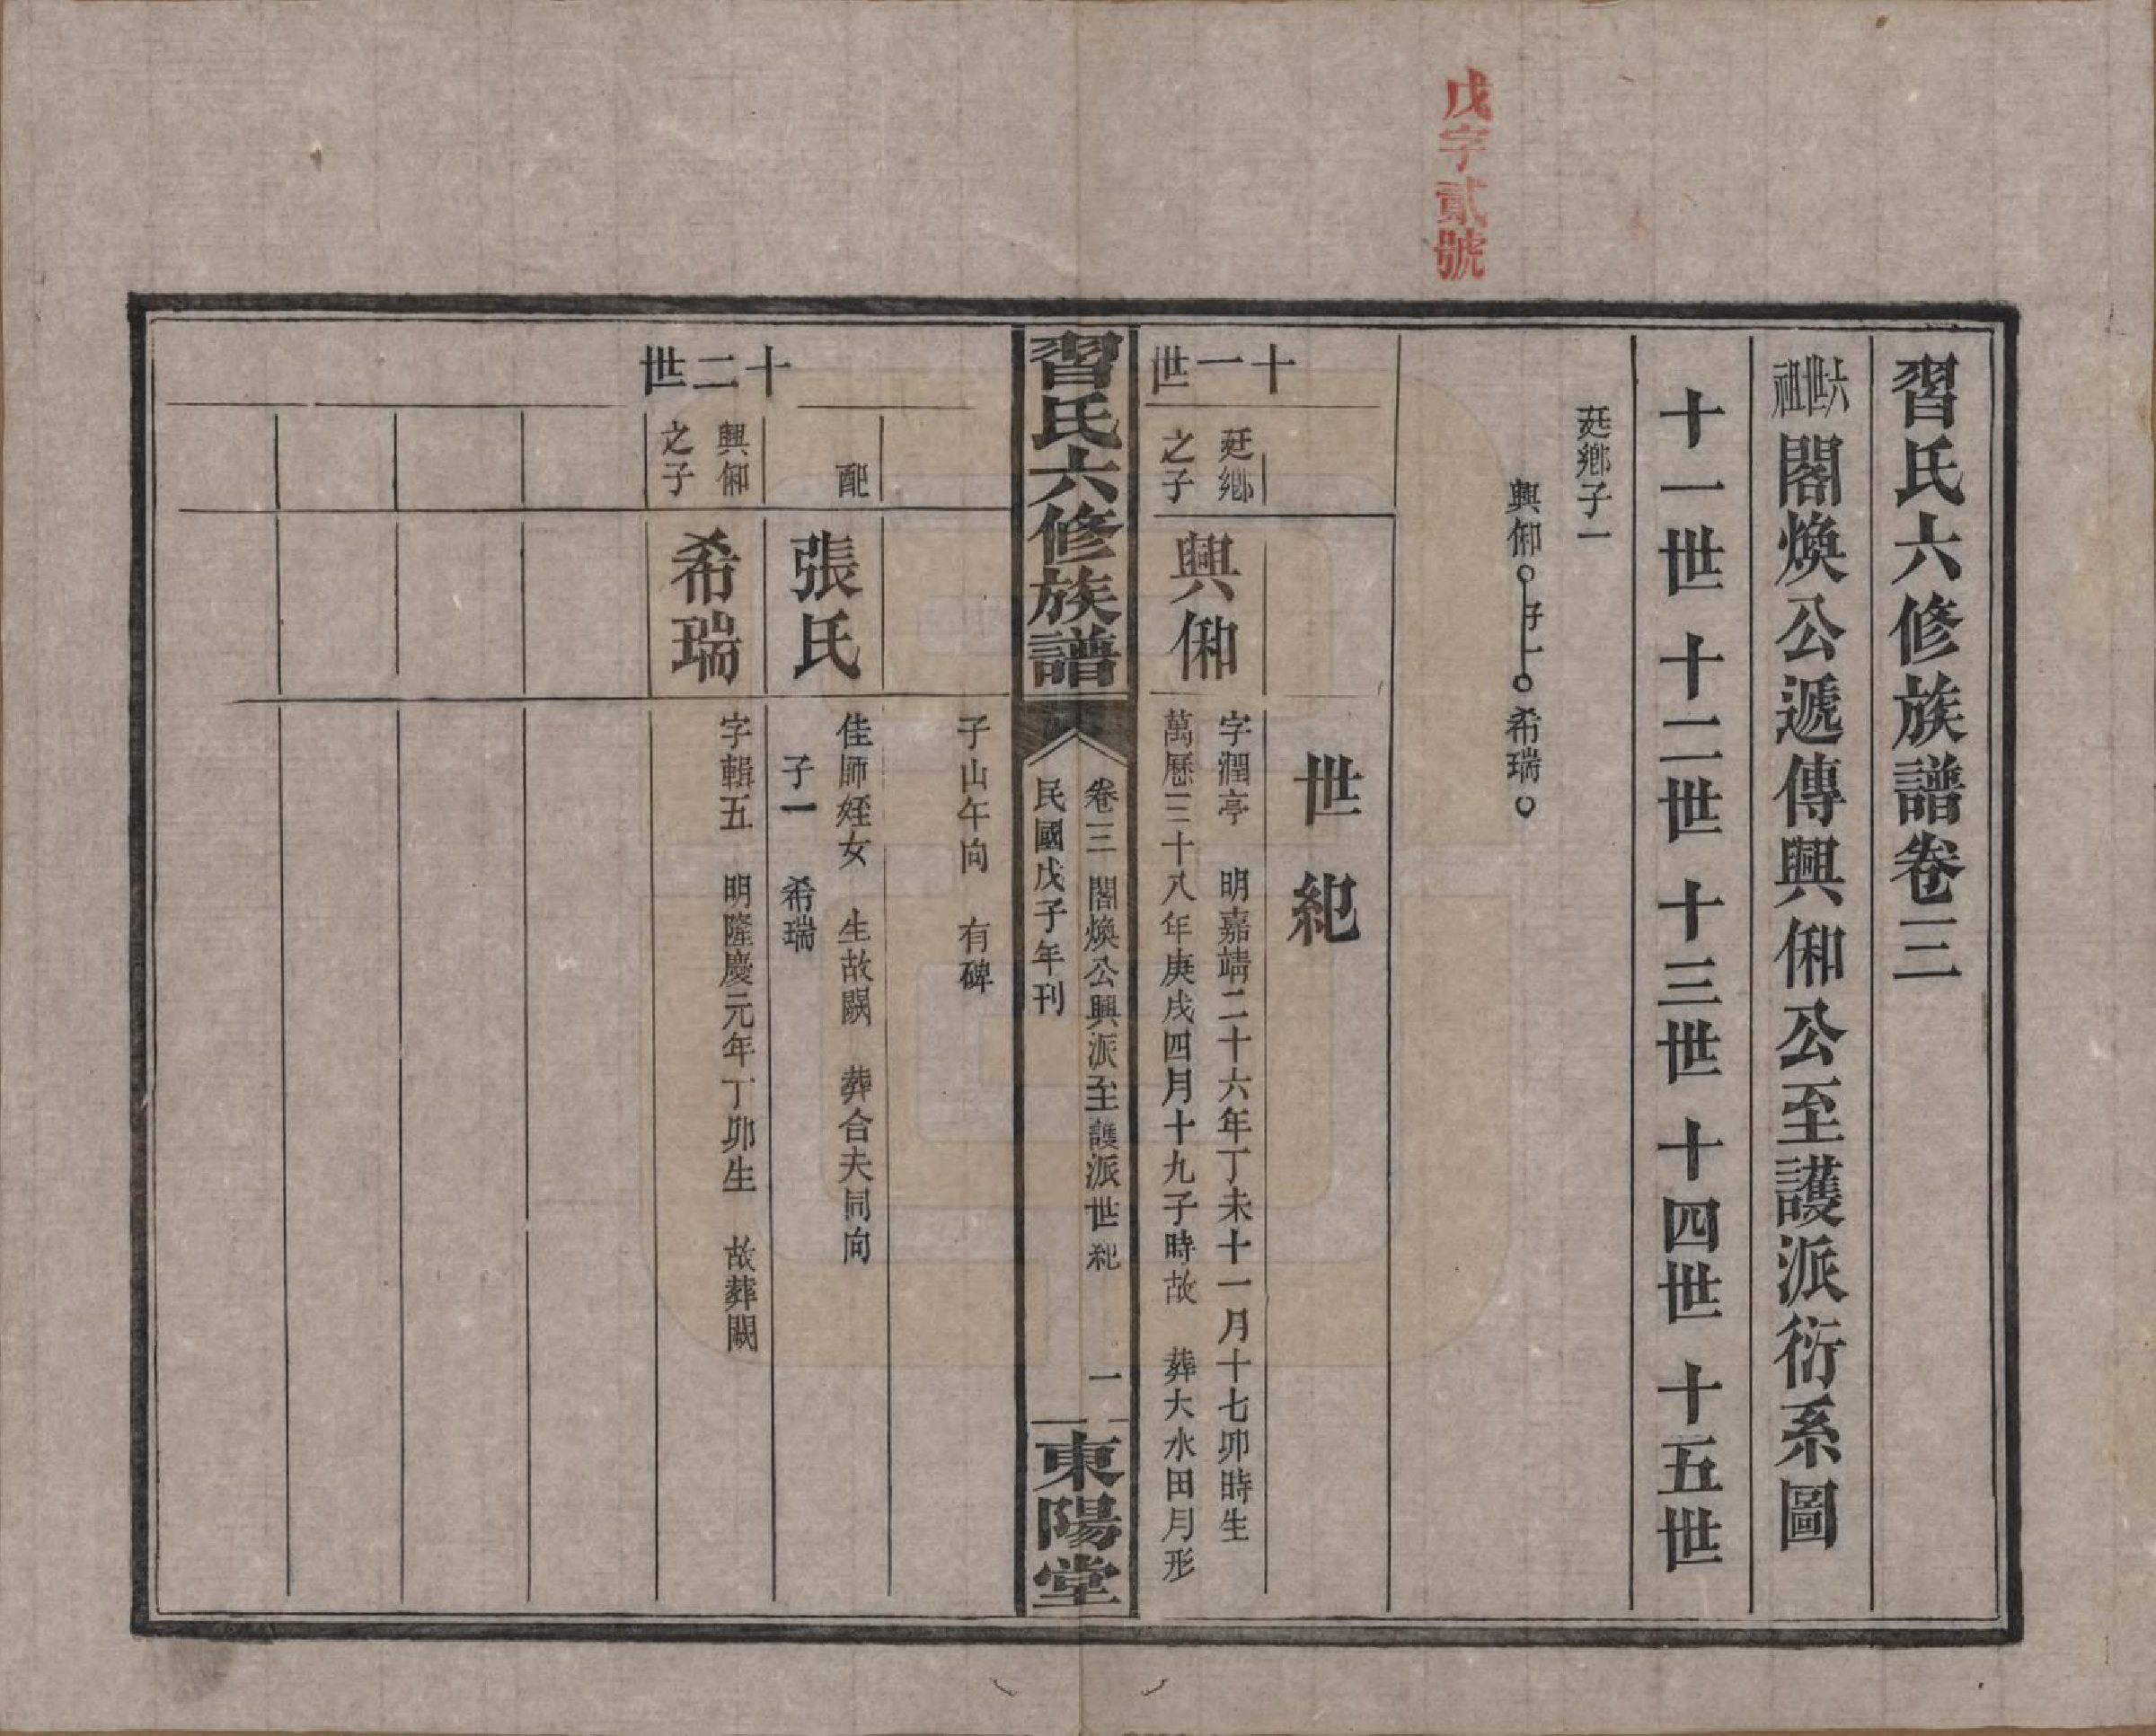 戊字貳號
習氏六修族譜卷三
六世祖閣煥公遞傳興俰公至護派衍系圖
十一世 十二世 十三世 十四世 十五世
廷鄉子一
興俰 子一 希瑞
世紀
十一世
廷鄉之子
興俰
字潤亭 明嘉靖二十六年丁未十一月十七卯時生
萬歷三十八年庚戌四月十九子時故 葬大水田月形
習氏六修族譜
卷三 閣煥公興派至護派世紀 一
民國戊子年刊
東陽堂
子山午向 有碑
配
張氏
佳師姪女 生故闕 葬合夫同向
子一 希瑞
十二世
興俰之子
希瑞
字輯五 明隆慶元年丁卯生 故葬闕